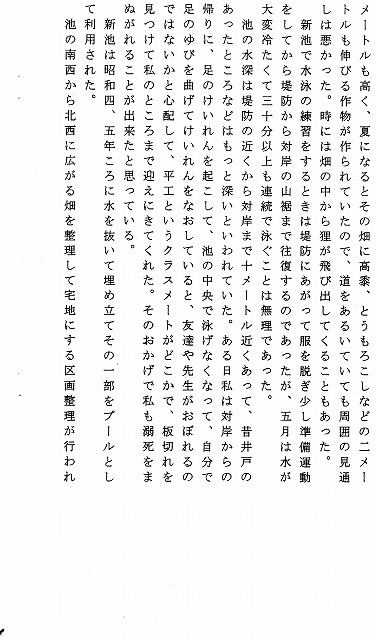 メートルも高く、夏になるとその畑に高黍、とうもろこしなどの二メー
トルも伸びる作物が作られていたので、道をあるいていても周囲の見通
しは悪かった。時には畑の中から狸が飛び出してくることもあった。
　新池で水泳の練習をするときは堤防にあがって服を脱ぎ少し準備運動
をしてから堤防から対岸の山裾まで往復するのであったが、五月は水が
大変冷たくて三十分以上も連続で泳ぐことは無理であった。
　池の水深は堤防の近くから対岸まで十メートル近くあって、昔井戸の
あったところなどはもっと深いといわれていた。ある日私は対岸からの
帰りに、足のけいれんを起こして、池の中央で泳げなくなって、自分で
足のゆびを曲げてけいれんをなおしていると、友達や先生がおぼれるの
ではないかと心配して、平工というクラスメートがどこかで、板切れを
見つけて私のところまで迎えにきてくれた。そのおかげで私も溺死をま
ぬがれることが出来たと思っている。
　新池は昭和四、五年ころに水を抜いて埋め立てその一部をプールとし
て利用された。
　池の南西から北西に広がる畑を整理して宅地にする区画整理が行われ